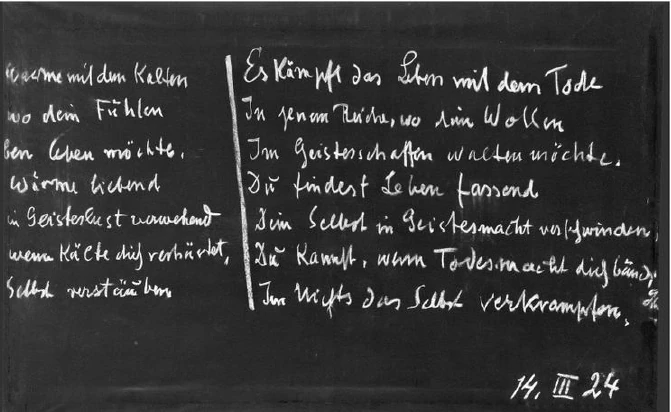 warme mit dem Kalten
wo dein Fühlen
ben leben möchte.
wärme liebend
in Geisteslust verwehend
wenn Kälte dich verhärtet,
Selbst verstäuben
Es kämpft das Leben mit dem Tode
In jenem Reiche, wo dein Wollen
Im Geistesschaffen walten möchte.
Du findest Leben fassend
Dein Selbst in Geistesmacht verschwinden,
Du kannst, wenn Todesmacht dich bänd
Im Nichts das Selbst verkrampfen.
14. III 24